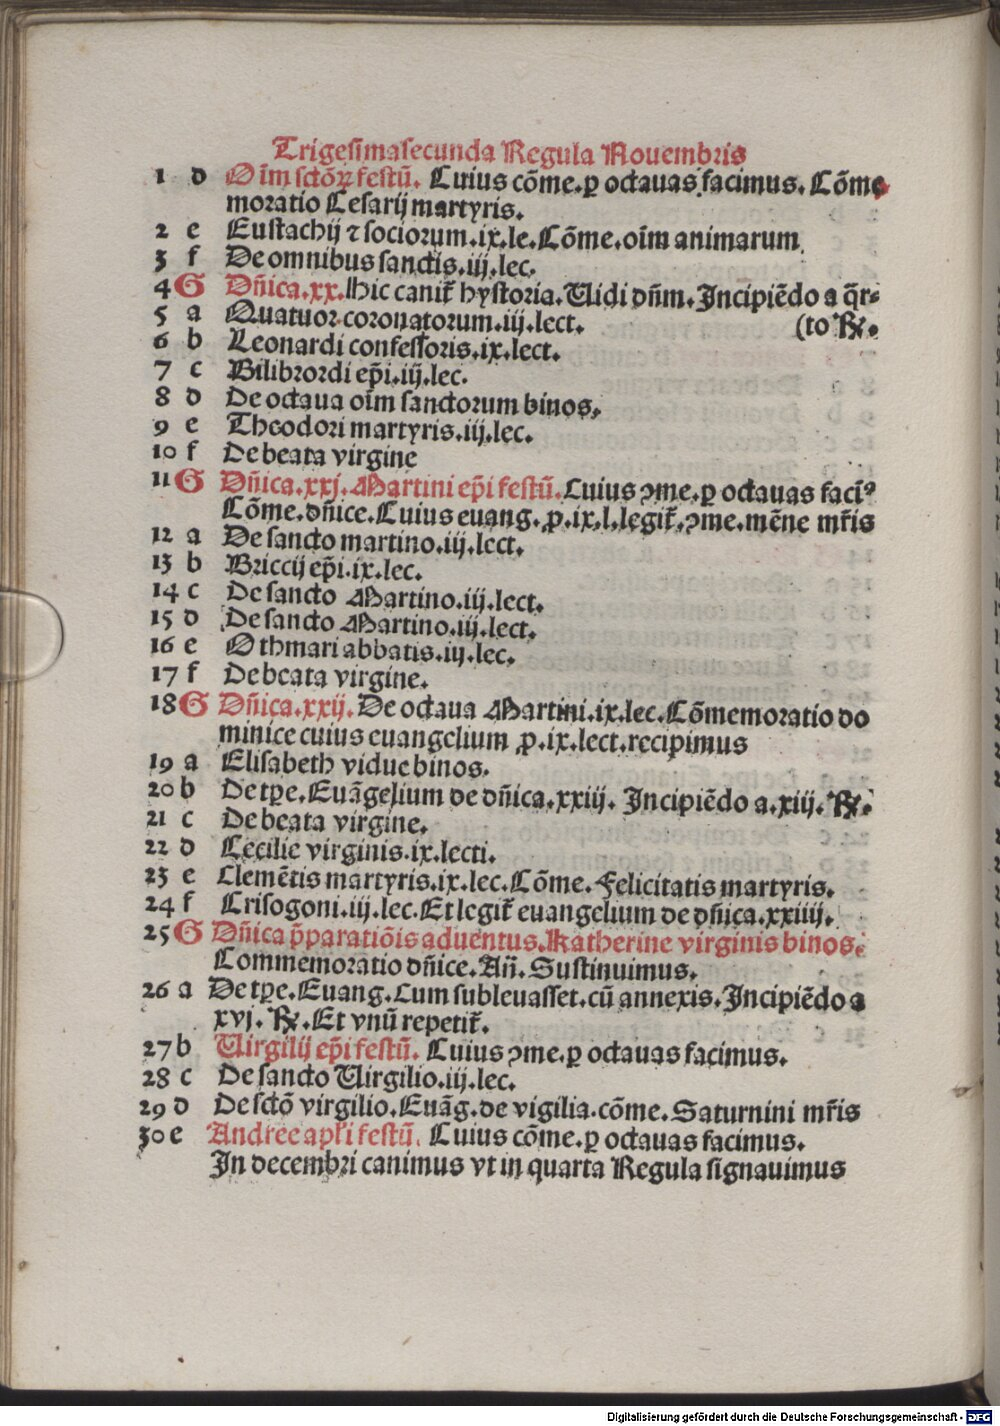 Trigesimasecunda Regula Nouembris
1 d Oi͂m sctõꝝ festũ. Cuius cõme. ꝑ octauas facimus. Cõme
moratio Cesarij martyris.
2 e Eustachij ⁊ sociorum. ix. le. Cõme. oi͂m animarum
3 f De omnibus sanctis. iij. lec.
4 G Dñica. xx. Hic canit᷑ hystoria. Uidi dñm. Incipiẽdo a q̃r⸗
5 a Quatuor coronatorum. iij. lect. (to ℞.
6 b Leonardi confessoris. ix. lect.
7 c Bilibrordi ep̃i. iij. lec.
8 d De octaua oi͂m sanctorum binos.
9 e Theodori martyris. iij. lec.
10 f De beata virgine
11 G Dñica. xxj. Martini ep̃i festũ. Cuius ↄme. ꝑ octauas faci᷒
Cõme. dñice. Cuius euang. ꝓ. ix. l. legit᷑. ↄme. mẽne mr̃is
12 a De sancto martino. iij. lect.
13 b Briccij ep̃i. ix. lec.
14 c De sancto Martino. iij. lect.
15 d De sancto Martino. iij. lect.
16 e Othmari abbatis. iij. lec.
17 f De beata virgine.
18 G Dñica. xxij. De octaua Martini. ix. lec. Cõmemoratio do
minice cuius euangelium ꝓ. ix. lect. recipimus
19 a Elisabeth vidue binos.
20 b De tꝑe. Euãgelium de dñica. xxiij. Incipiẽdo a. xiij. ℞.
21 c De beata virgine.
22 d Cecilie virginis. ix. lecti.
23 e Clemẽtis martyris. ix. lec. Cõme. Felicitatis martyris.
24 f Crisogoni. iij. lec. Et legit᷑ euangelium de dñica. xxiiij.
25 G Dñica p̃paratiõis aduentus. Katherine virginis binos.
Commemoratio dñice. Añ. Sustinuimus.
26 a De tꝑe. Euang. Cum subleuasset. cũ annexis. Incipiẽdo a
xvj. ℞. Et vnũ repetit᷑.
27 b Uirgilij ep̃i festũ. Cuius ↄme. ꝑ octauas facimus.
28 c De sancto Uirgilio. iij. lec.
29 d De sctõ virgilio. Euãg. de vigilia. cõme. Saturnini mr̃is
30 e Andree apl̃i festũ. Cuius cõme. ꝑ octauas facimus.
In decembri canimus vt in quarta Regula signauimus
Digitalisierung gefördert durch die Deutsche Forschungsgemeinschaft - DFG